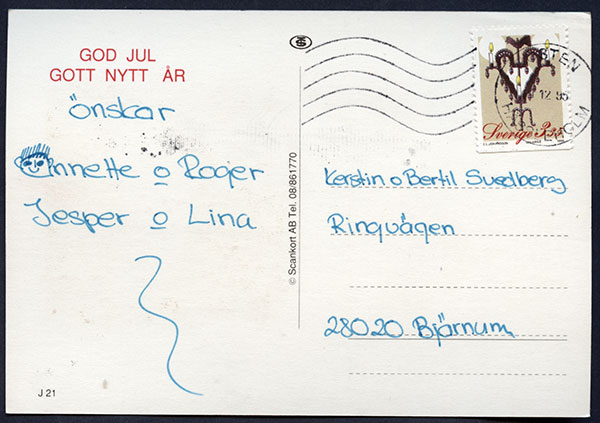 GOD JUL
GOTT NYTT ÅR
önskar
Annette o Roger
Jesper o Lina
J 21
© Scankort AB Tel. 08/861770
Sverige
12 95
Kerstin o Bertil Svedberg
Ringvägen
28020 Bjärnum